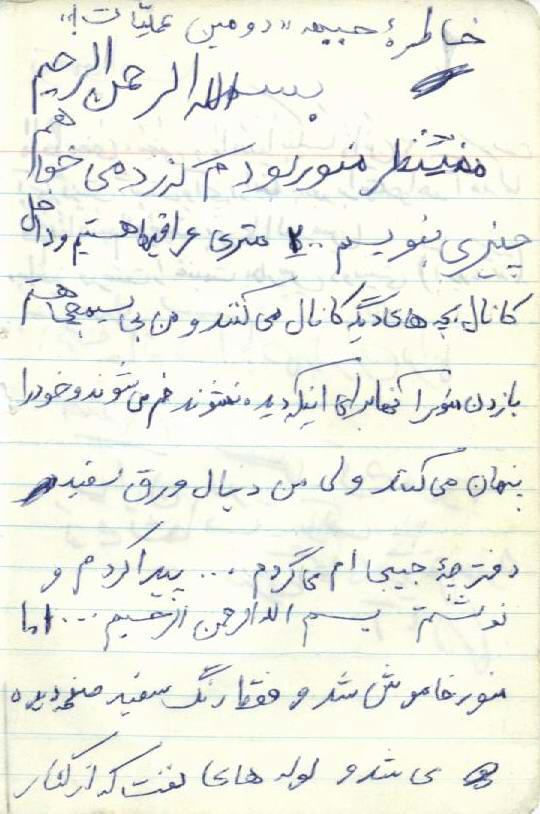 خاطرهٔ جبهه «دومین عملیات!»
بسم الله الرحمن الرحیم
منتظر منور بودم که زدمی خواهم
چیزی بنویسم... ۷ متری عراقیها هستیم و داخل
کانال بچه های دیگر کانال می کنند و من بی سیمچی هستم
با زدن منور آنها برای اینکه دیده نشوند خم می شوند و خود را
پنهان می کنند ولی من دنبال ورق سفید
دفترچهٔ جیبی ام می گردم ... پیدا کردم و
نوشتم بسم الله الرحمن الرحیم ... اما
منور خاموش شد و فقط رنگ سفید صفحه دیده
می شد و لوله های نفت که از کنار